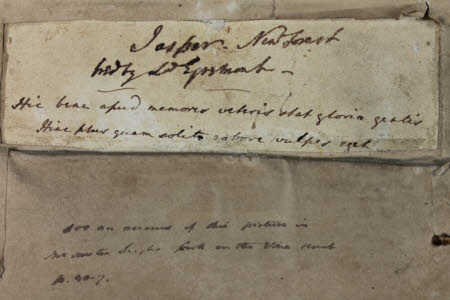 Jasper. New Forest
bred by Ld Egremont –
Hic bene apud memores veteris stat gloria gentis
Hinc plus quam solito robore vulpes eget
see an account of this picture in
book on the Vine Hunt
p.